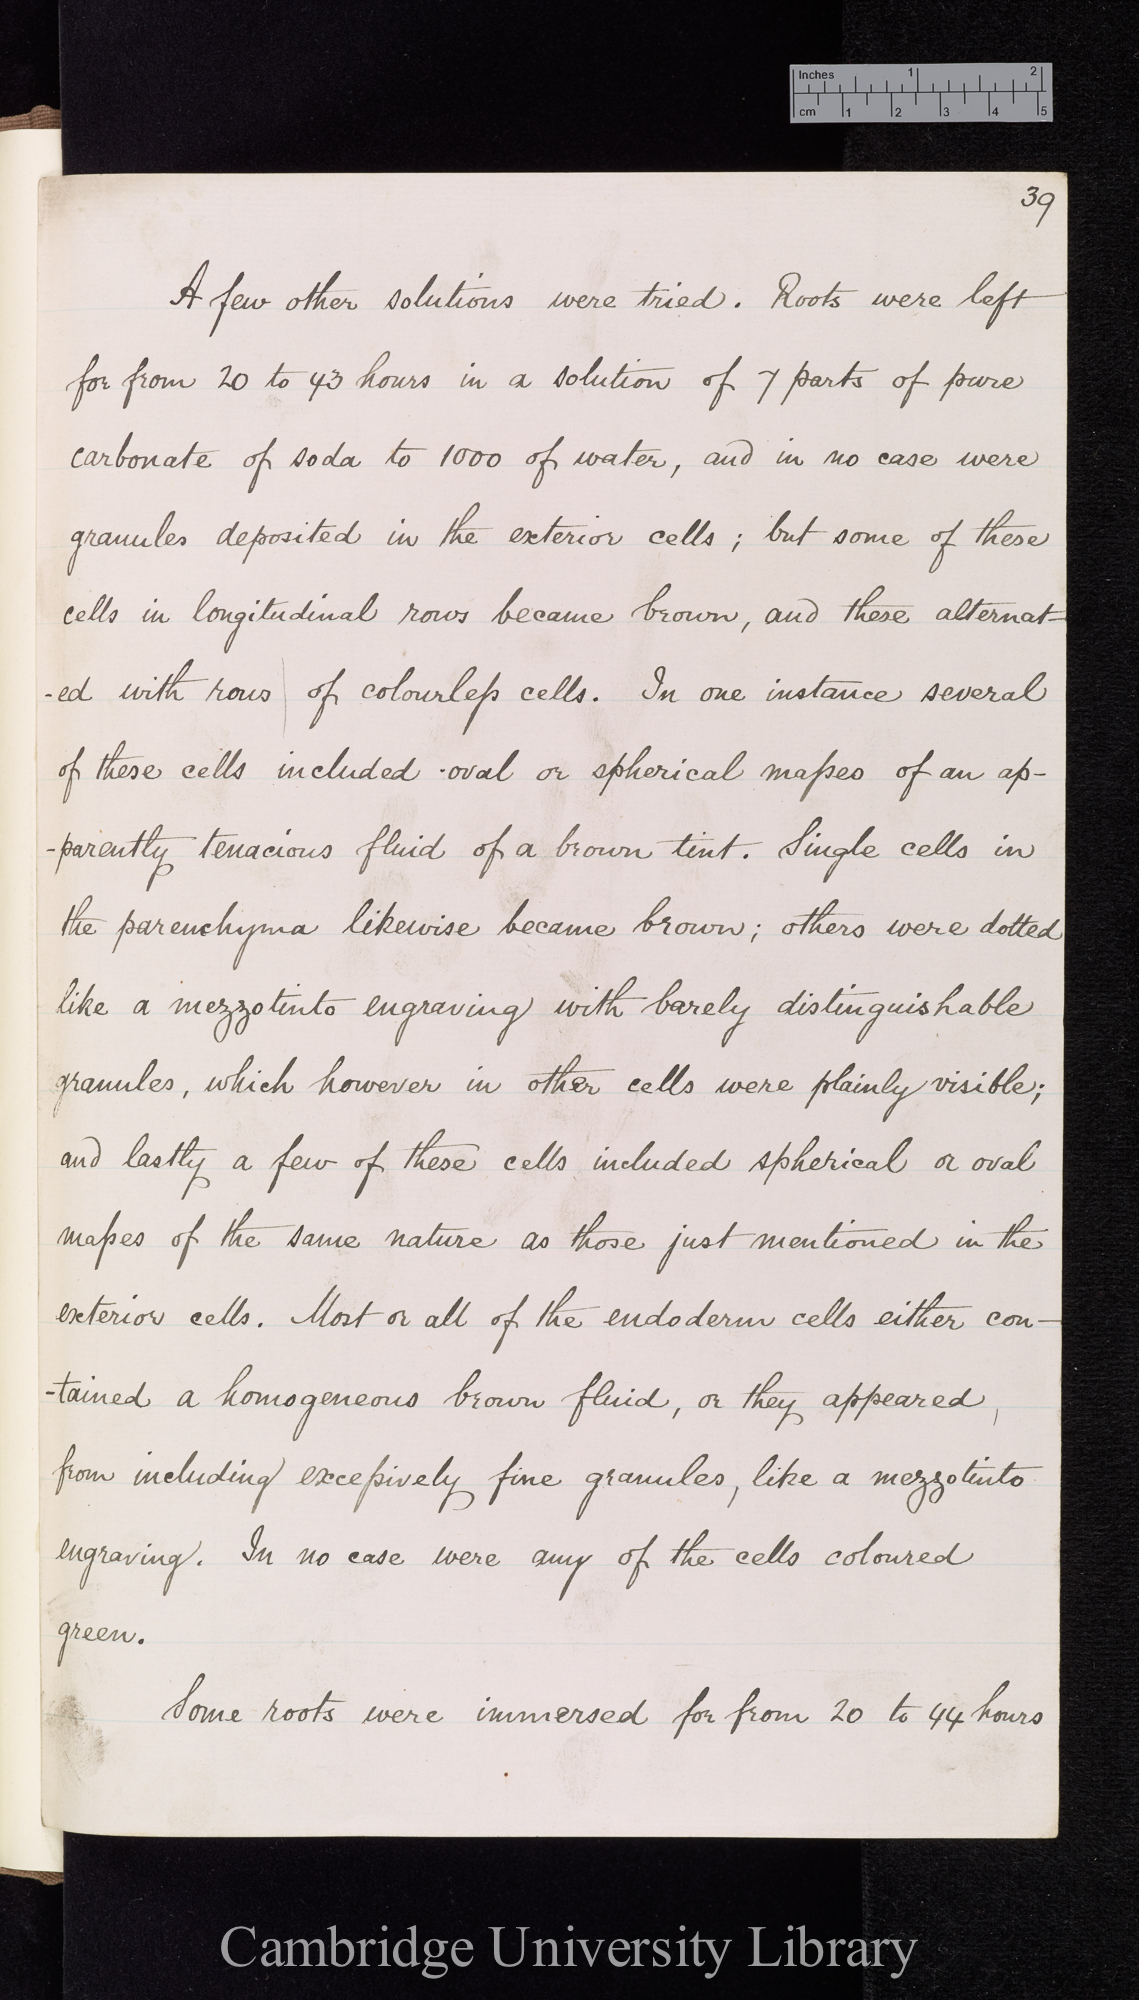 Inches 1 2
cm 1 2 3 4 5
39
A few other solutions were tried. Roots were left
for from 20 to 43 hours in a solution of 7 parts of pure
carbonate of soda to 1000 of water, and in no case were
granules deposited in the exterior cells; but some of these
cells in longitudinal rows became brown, and these alternat-
-ed with rows | of colourleſs cells. In one instance several
of these cells included oval or spherical maſses of an ap-
-parently tenacious fluid of a brown tint. Single cells in
the parenchyma likewise became brown; others were dotted
like a mezzotinto engraving with barely distinguishable
granules, which however in other cells were plainly visible;
and lastly a few of these cells included spherical or oval
maſses of the same nature as those just mentioned in the
exterior cells. Most or all of the endoderm cells either con-
-tained a homogeneous brown fluid, or they appeared,
from including exceſsively fine granules, like a mezzotinto
engraving. In no case were any of the cells coloured
green.
Some roots were immersed for from 20 to 44 hours
Cambridge University Library